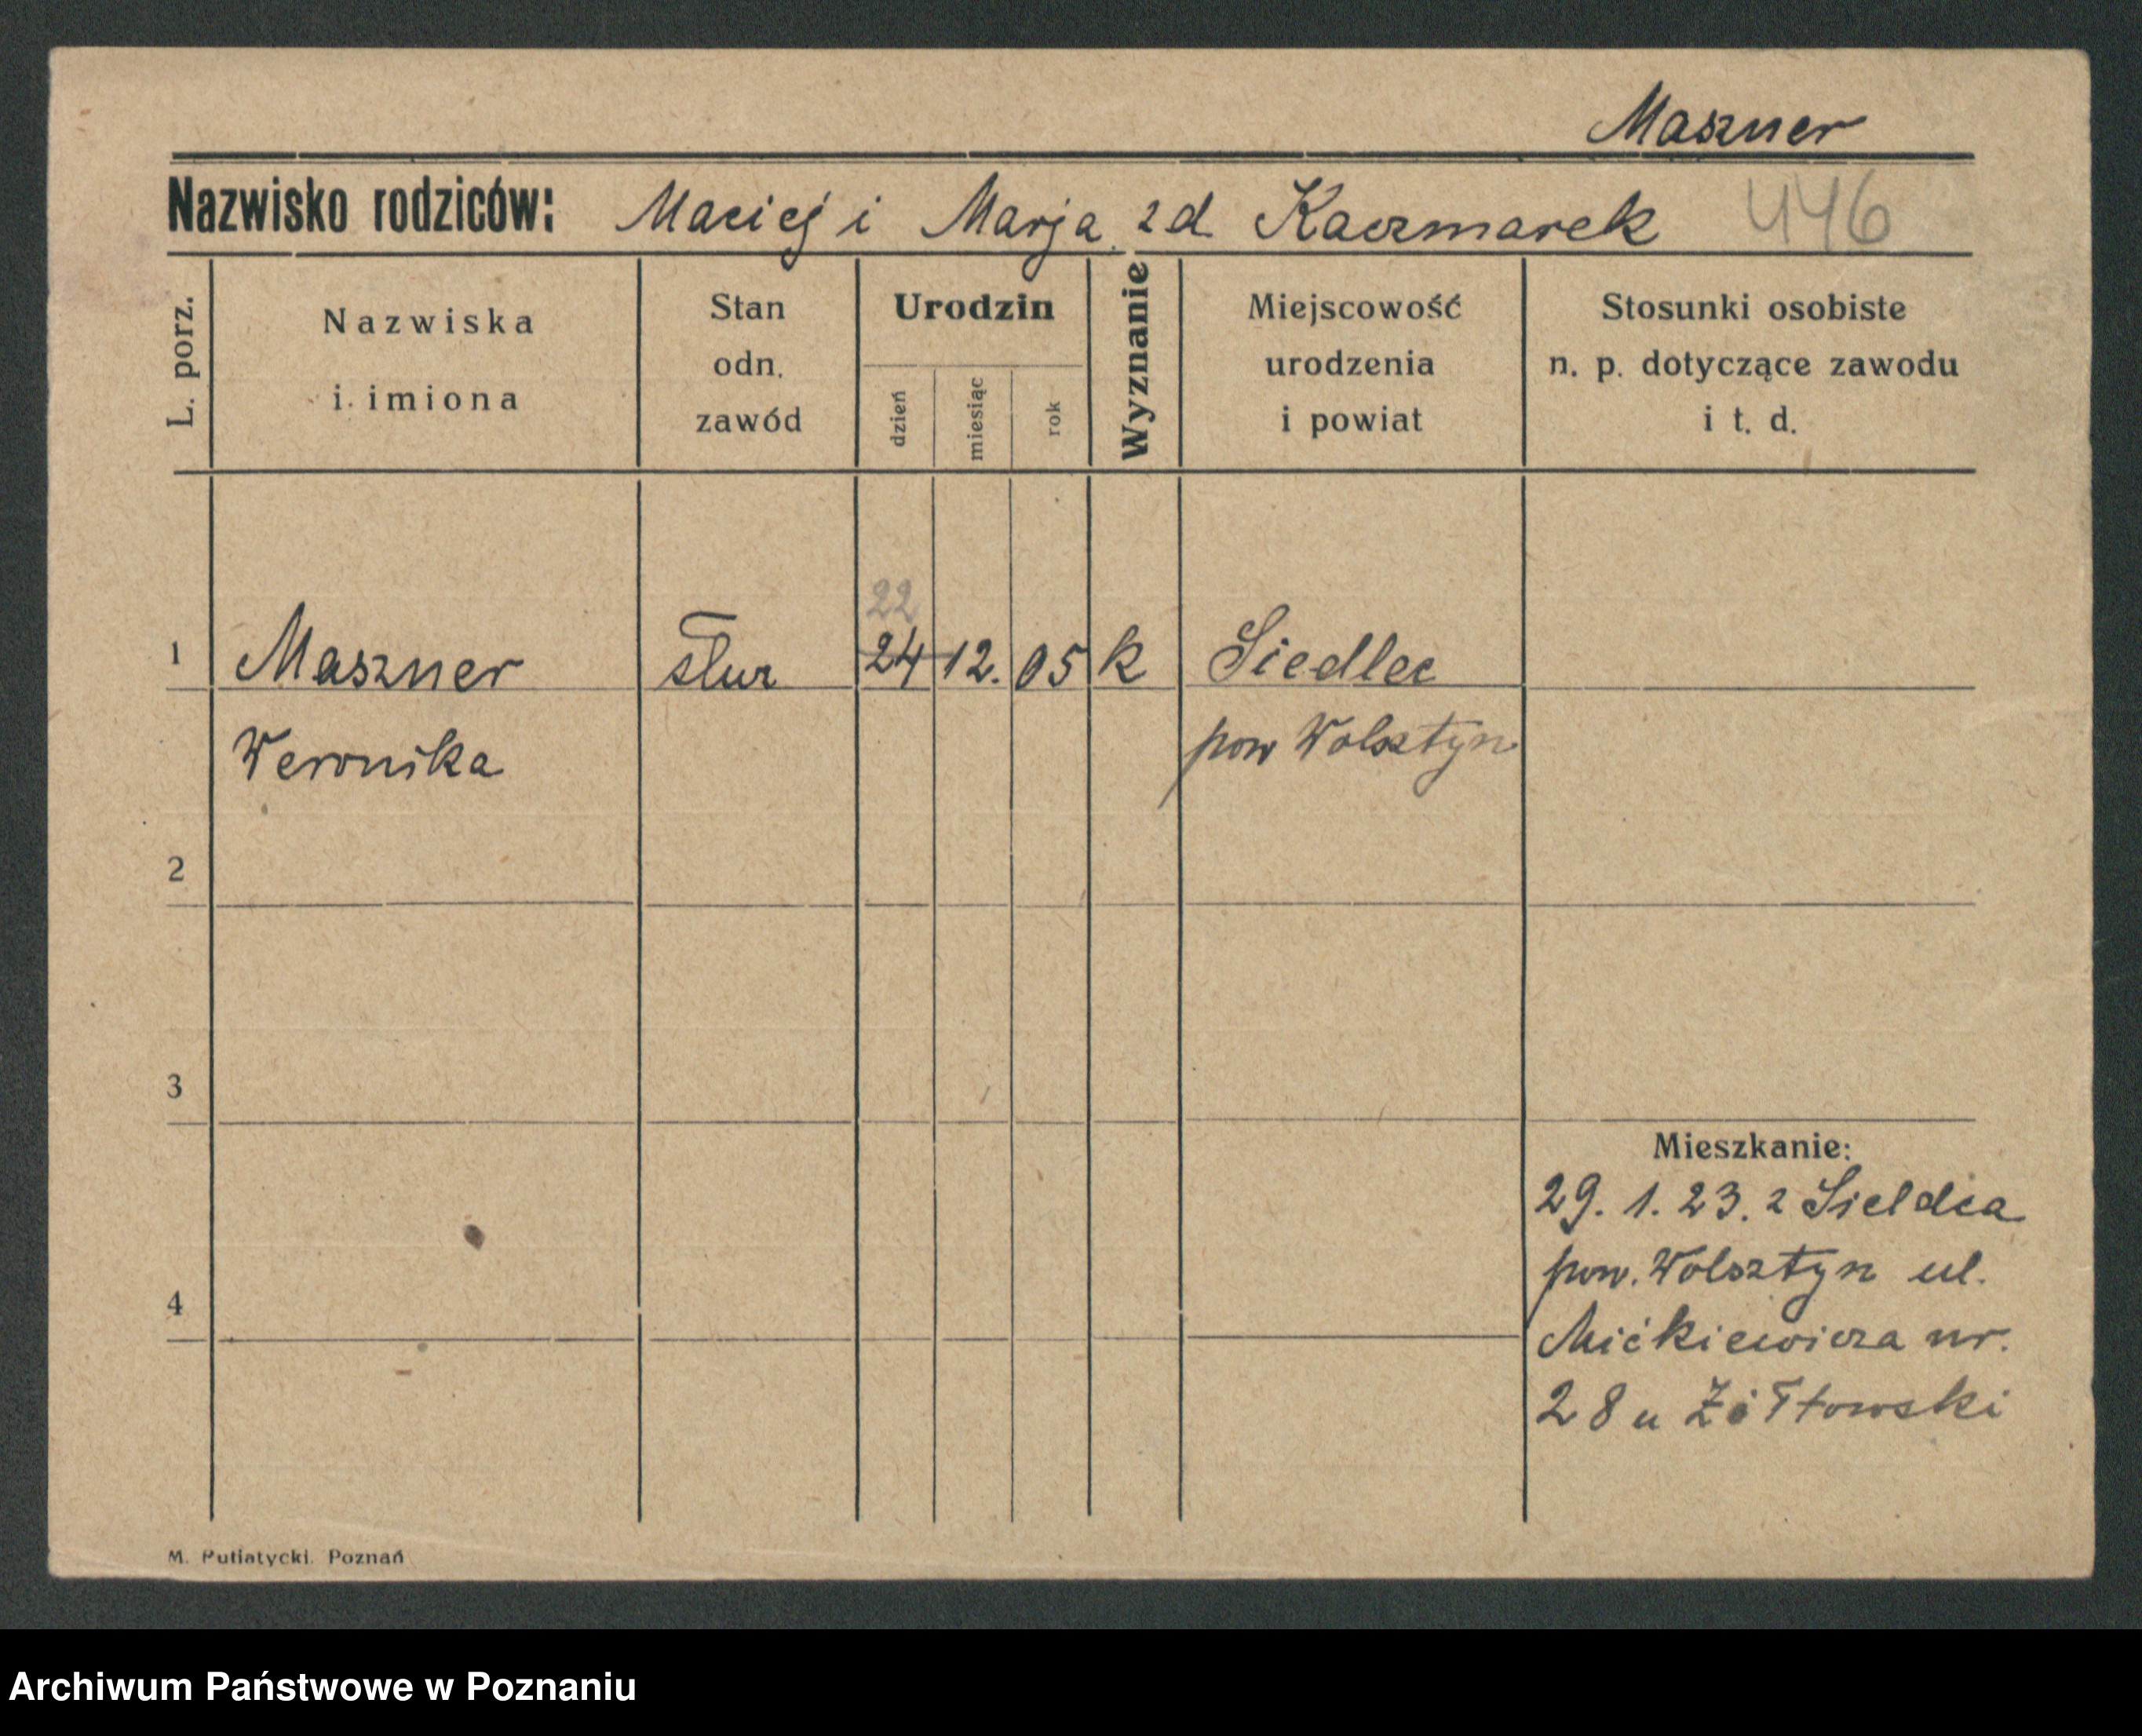 Maszner
Nazwisko rodziców: Maciej i Marja zd Kaczmarek 446
L. porz.
Nazwiska
i imiona
Stan
odn.
zawód
Urodzin
dzień
miesiąc
rok
Wyznanie
Miejscowość
urodzenia
i powiat
Stosunki osobiste
n. p. dotyczące zawodu
i t. d.
22
1 Maszner służ 24 12. 05 k Siedlec
Weronika pow Wolsztyn
2
3
Mieszkanie:
29. 1. 23. z Sieldca
pow. Wolsztyn ul.
4
Mićkiewicza nr.
28 u Żółtowski
M. Putiatycki. Poznań
Archiwum Państwowe w Poznaniu